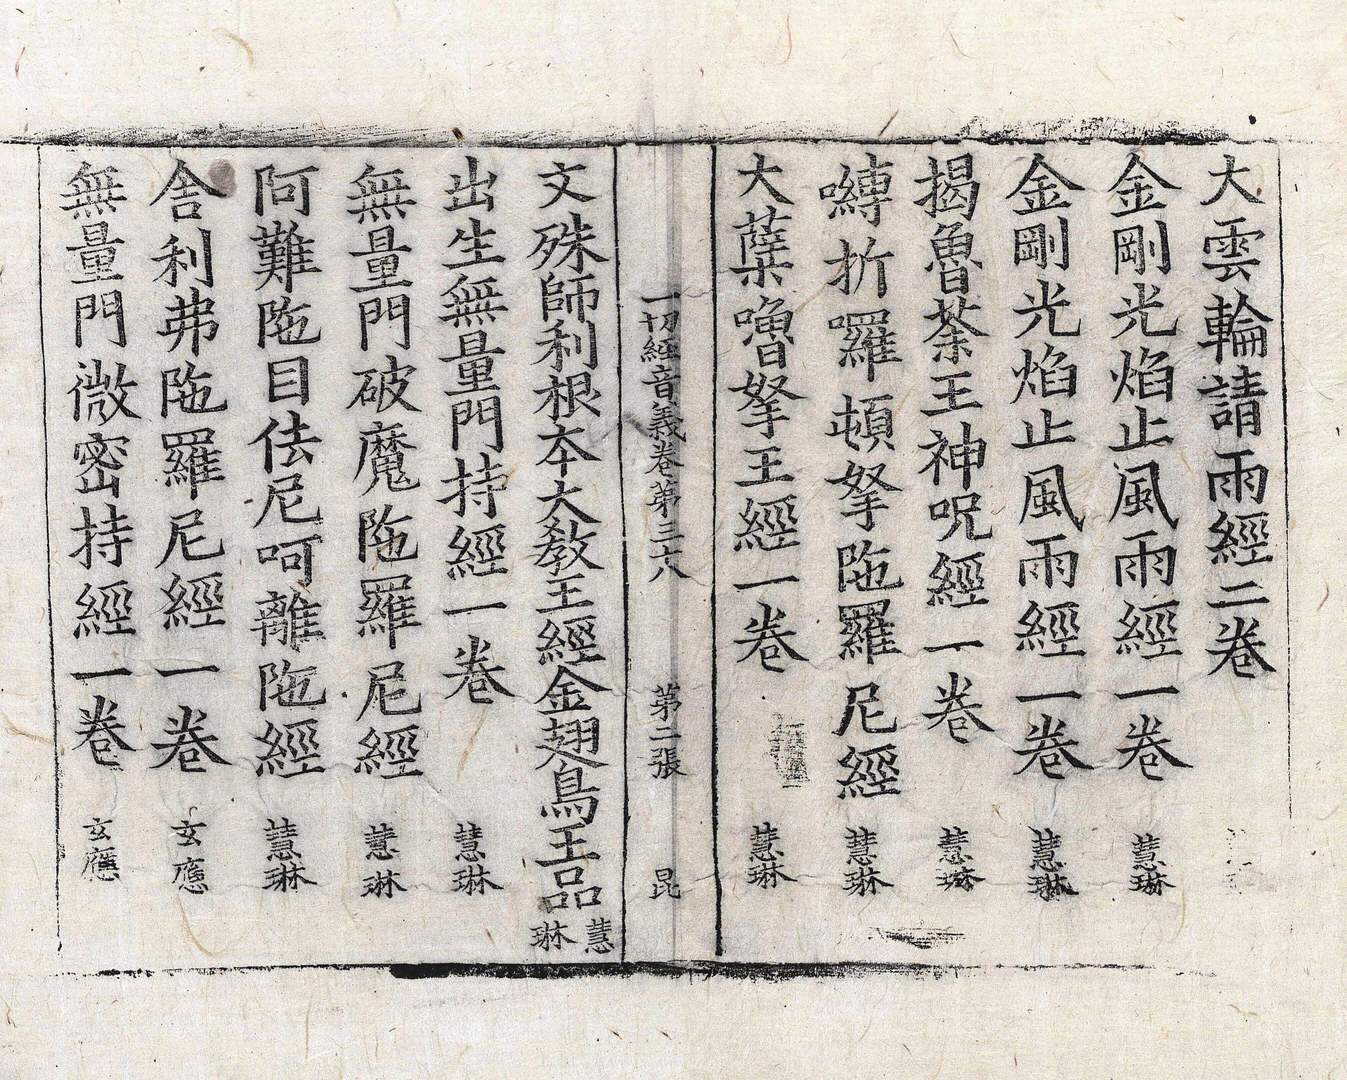 大雲輪請雨經二卷
金剛光焰止風雨經一卷 慧琳
金剛光焰止風雨經一卷 慧琳
揭魯荼王神呪經一卷 慧琳
嚩折囉頓拏陁羅尼經 慧琳
大蘗嚕拏王經一卷 慧琳
一切經音義卷第三六 第二張 昆
文殊師利根本大教王經金翅鳥王品 慧琳
出生無量門持經一卷 慧琳
無量門破魔陁羅尼經 慧琳
阿難陁目佉尼呵離陁經 慧琳
舍利弗陁羅尼經一卷 玄應
無量門微密持經一卷 玄應